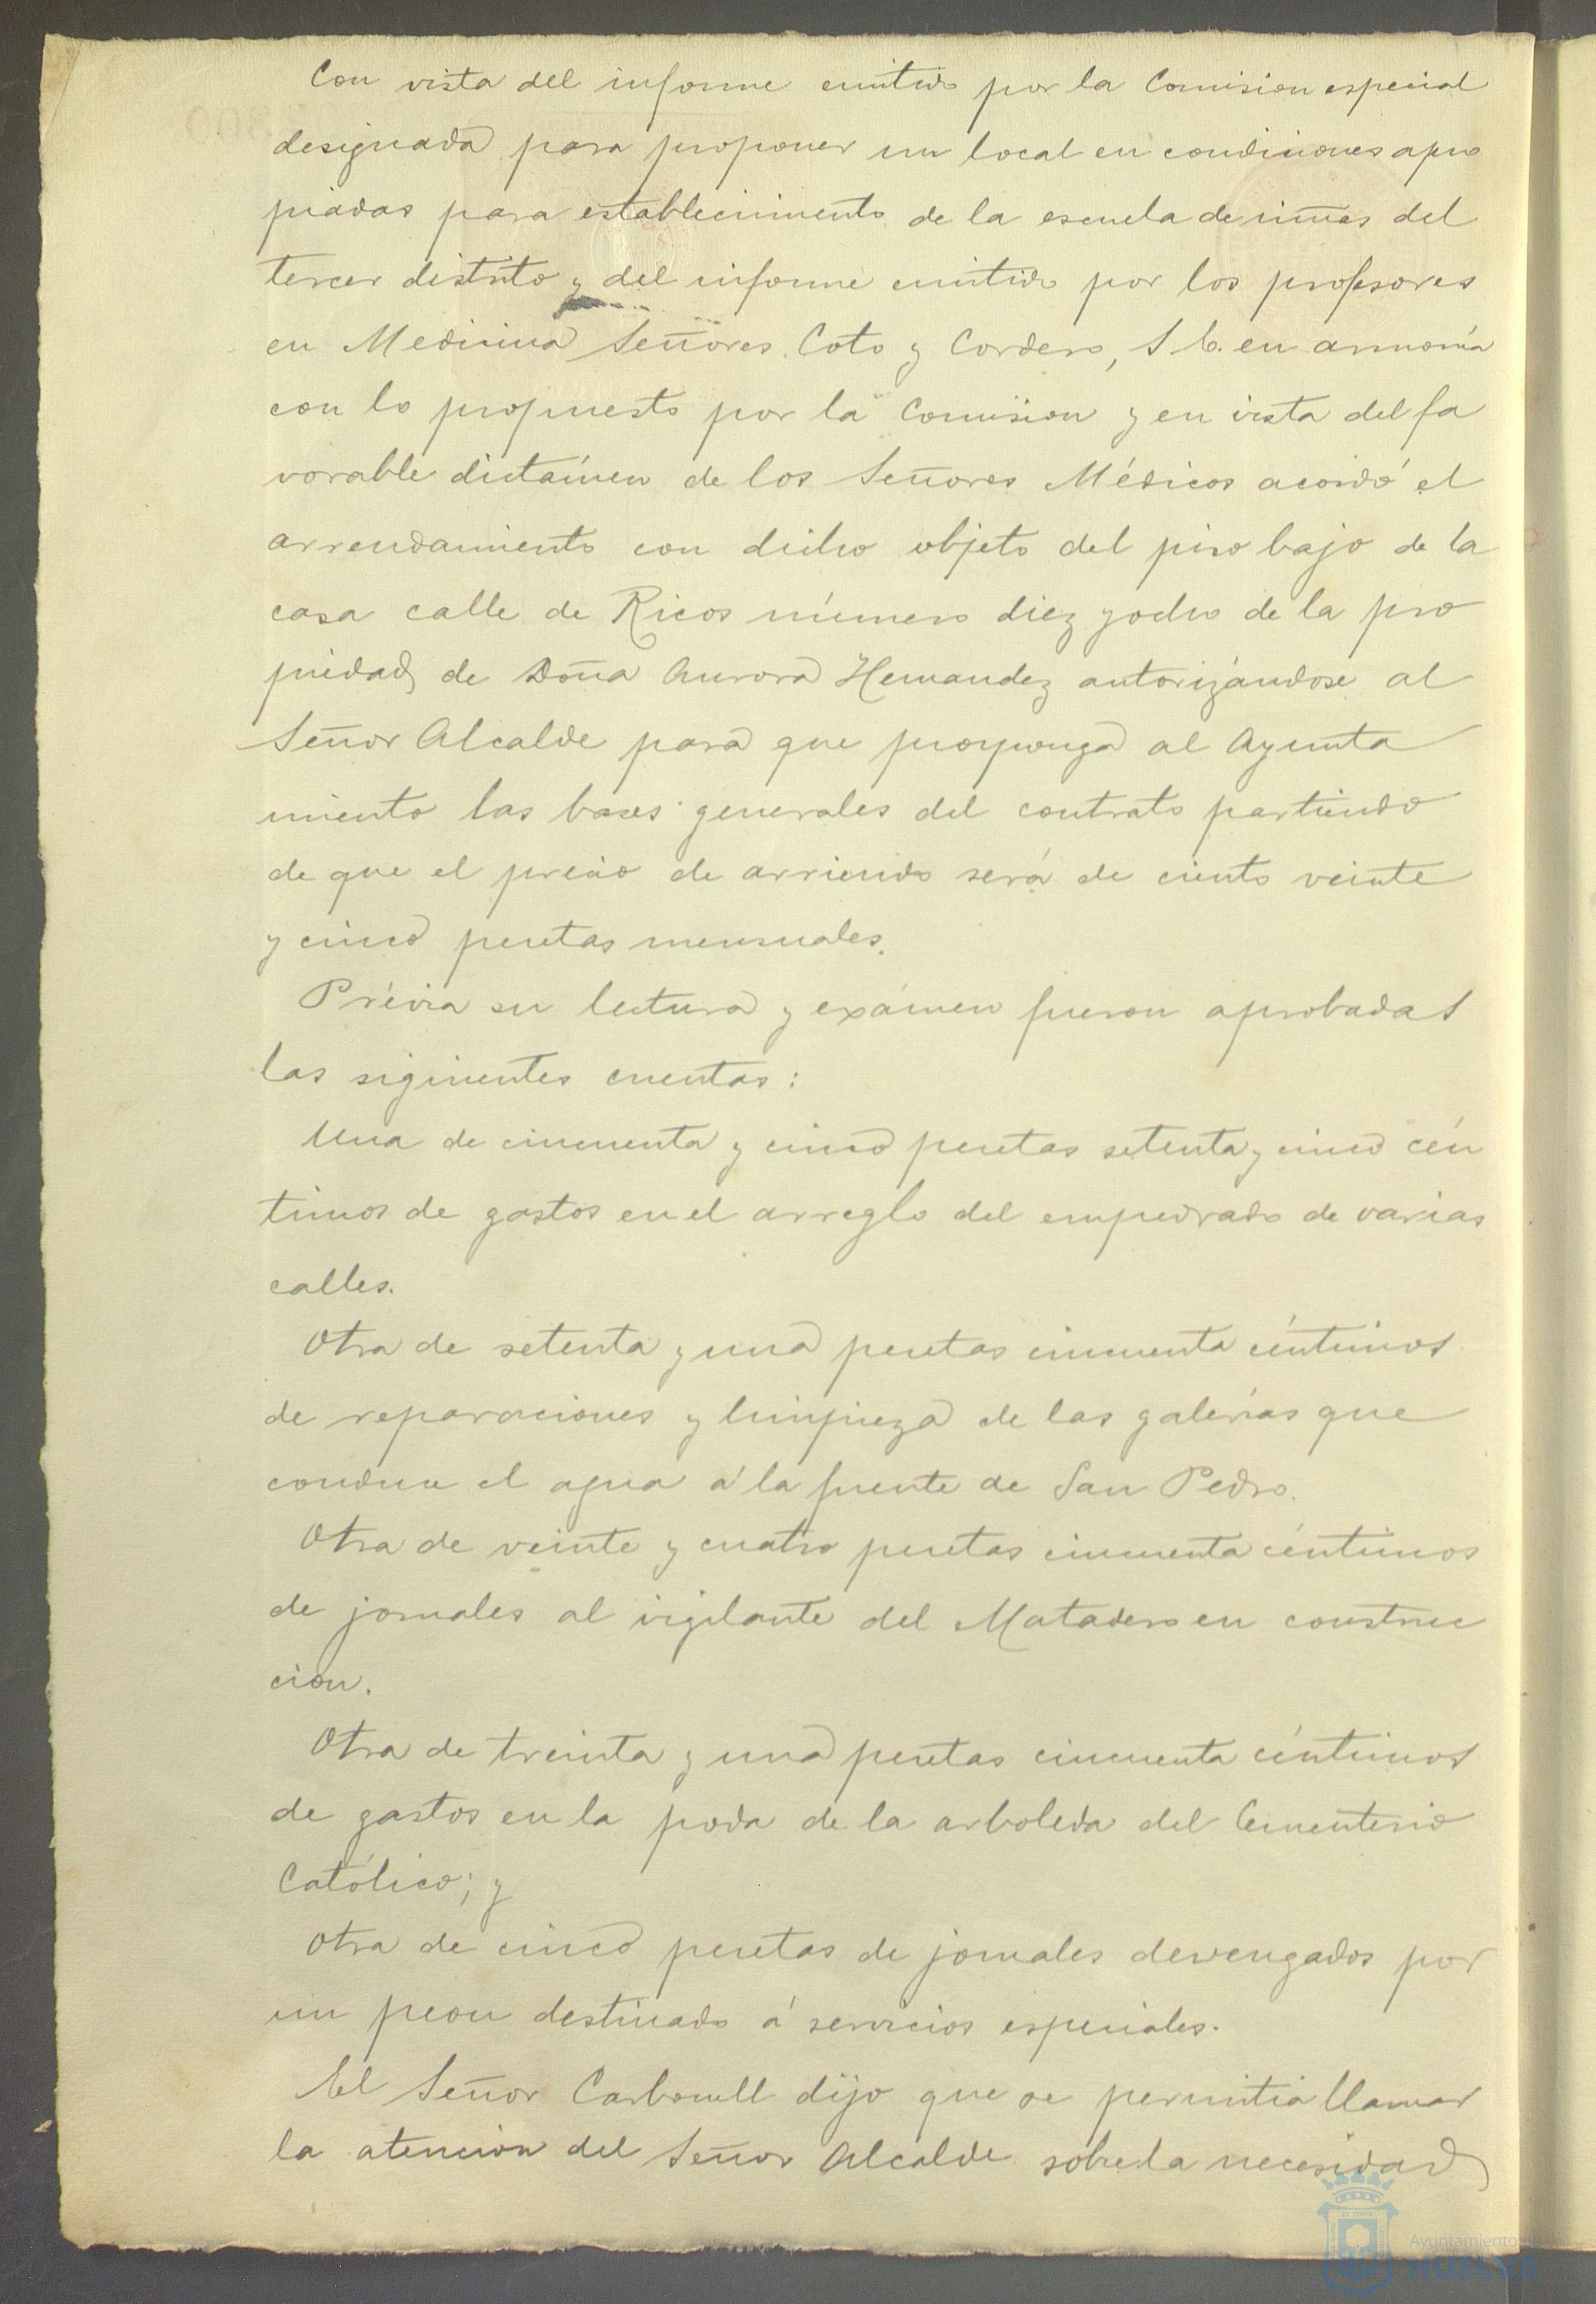 Con vista del informe emitido por la Comision especial
designada para proponer un local en condiciones apro
piadas para establecimiento de la escuela de niñas del
tercer distrito y del informe emitido por los profesores
en Medicina Señores Coto y Cordero, S. E. en armonía
con lo propuesto por la Comision y en vista del fa
vorable dictámen de los Señores Médicos acordó el
arrendamiento con dicho objeto del piso bajo de la
casa calle de Ricos número diez y ocho de la pro
piedad de Doña Aurora Hernandez autorizándose al
Señor Alcalde para que proponga al Ayunta
miento las bases generales del contrato partiendo
de que el precio de arriendo será de ciento veinte
y cinco pesetas mensuales.
Prévia su lectura y exámen fueron aprobadas
las siguientes cuentas:
Una de cincuenta y cinco pesetas setenta y cinco cén
timos de gastos en el arreglo del empedrado de varias
calles.
Otra de setenta y una pesetas cincuenta céntimos
de reparaciones y limpieza de las galerías que
conduce el agua á la fuente de San Pedro.
Otra de veinte y cuatro pesetas cincuenta céntimos
de jornales al vigilante del Matadero en construc
cion.
Otra de treinta y una pesetas cincuenta céntimos
de gastos en la poda de la arboleda del Cementerio
Católico; y
Otra de cinco pesetas de jornales devengados por
un peon destinado á servicios especiales.
El Señor Carbonell dijo que se permitia llamar
la atencion del Señor Alcalde sobre la necesidad
Ayuntamiento de
HUELVA